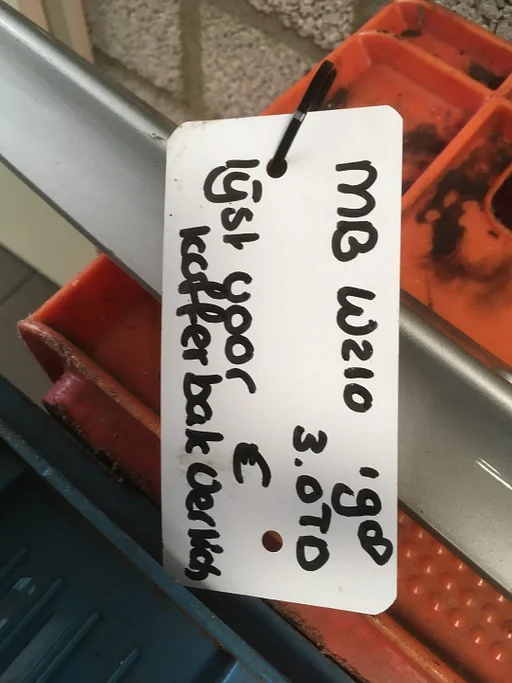 MB W210 '98
3.0TD
€
lijst voor
kofferbak